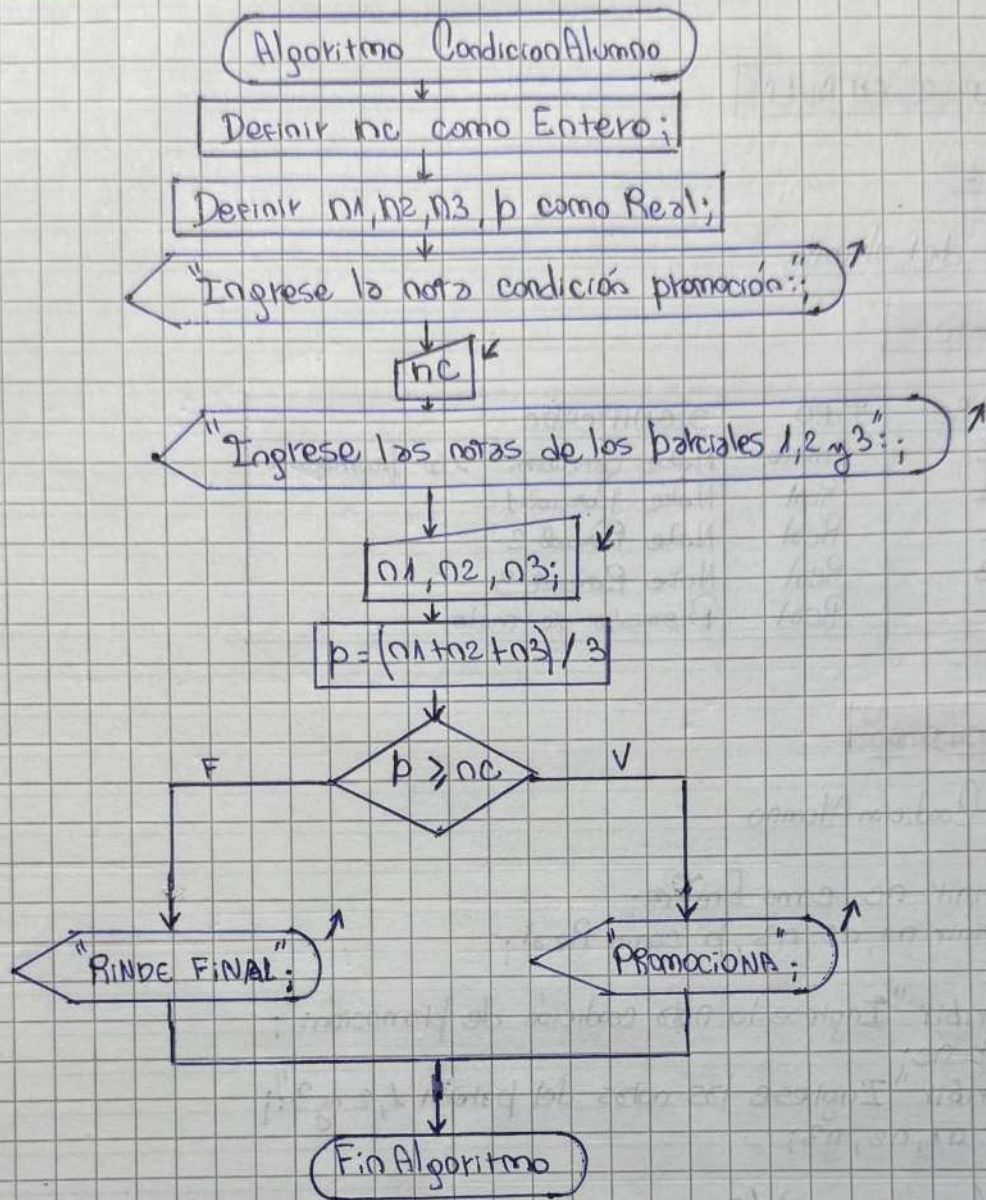 Algoritmo CondicionAlumno
Definir nc como Entero;
Definir n1, n2, n3, p como Real;
"Ingrese la nota condición promoción:";
nc
"Ingrese las notas de los parciales 1, 2 y 3:";
n1, n2, n3;
p = (n1+n2+n3) / 3
p ≥ nc
F
V
"RINDE FINAL";
"PROMOCIONA";
FinAlgoritmo